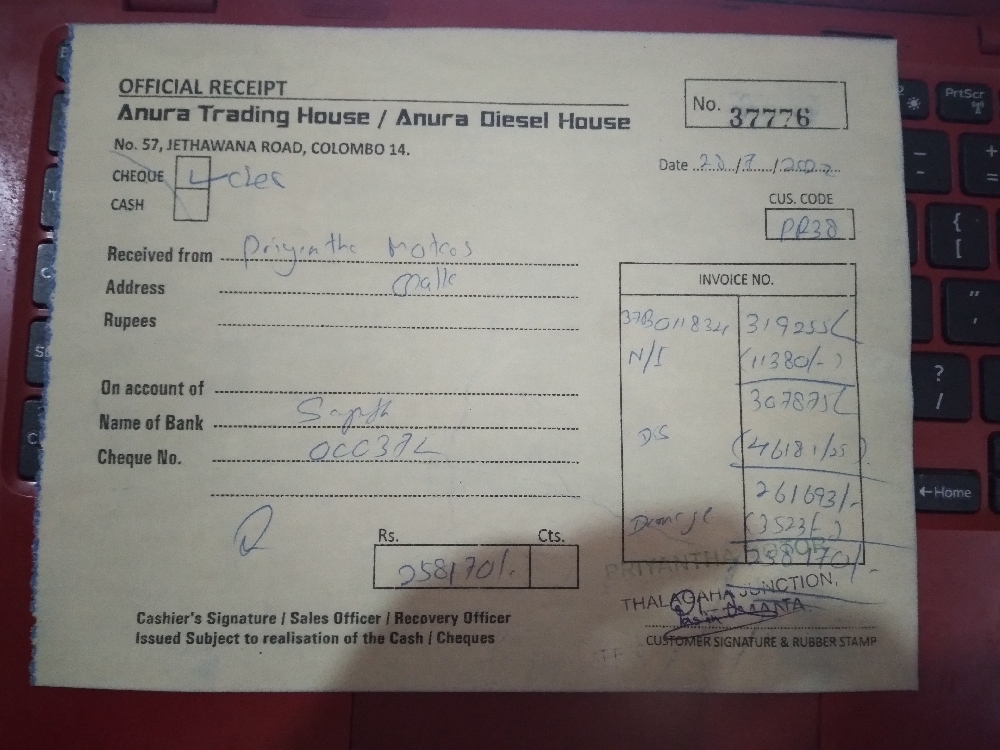 OFFICIAL RECEIPT
Anura Trading House / Anura Diesel House
No. 57, JETHAWANA ROAD, COLOMBO 14.
No. 37776
Date
CHEQUE
CASH
CUS. CODE
PR38
Received from Priyantha Motors
Address Galle
Rupees
On account of
Name of Bank
Cheque No.
INVOICE NO.
319255/-
N/I (11380/-)
307875/-
Dis (46181/
261693/-
Damage (3523/-)
258170/-
Rs. Cts.
258170/-
PRIYANTHA MOTOR
THALAGAHA JUNCTION,
Cashier's Signature / Sales Officer / Recovery Officer
Issued Subject to realisation of the Cash / Cheques
CUSTOMER SIGNATURE & RUBBER STAMP
PrtScr
Home